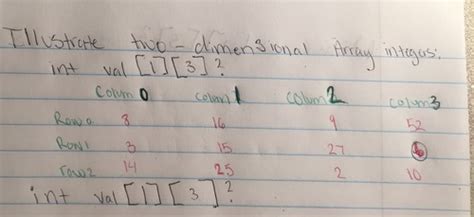 Illustrate two-dimensional Array integers:
int val [1][3]?
Colum 0 colum 1 colum 2 colum 3
Row 0 8 16 9 52
Row 1 3 15 27 6
row 2 14 25 2 10
int val [1][3]?